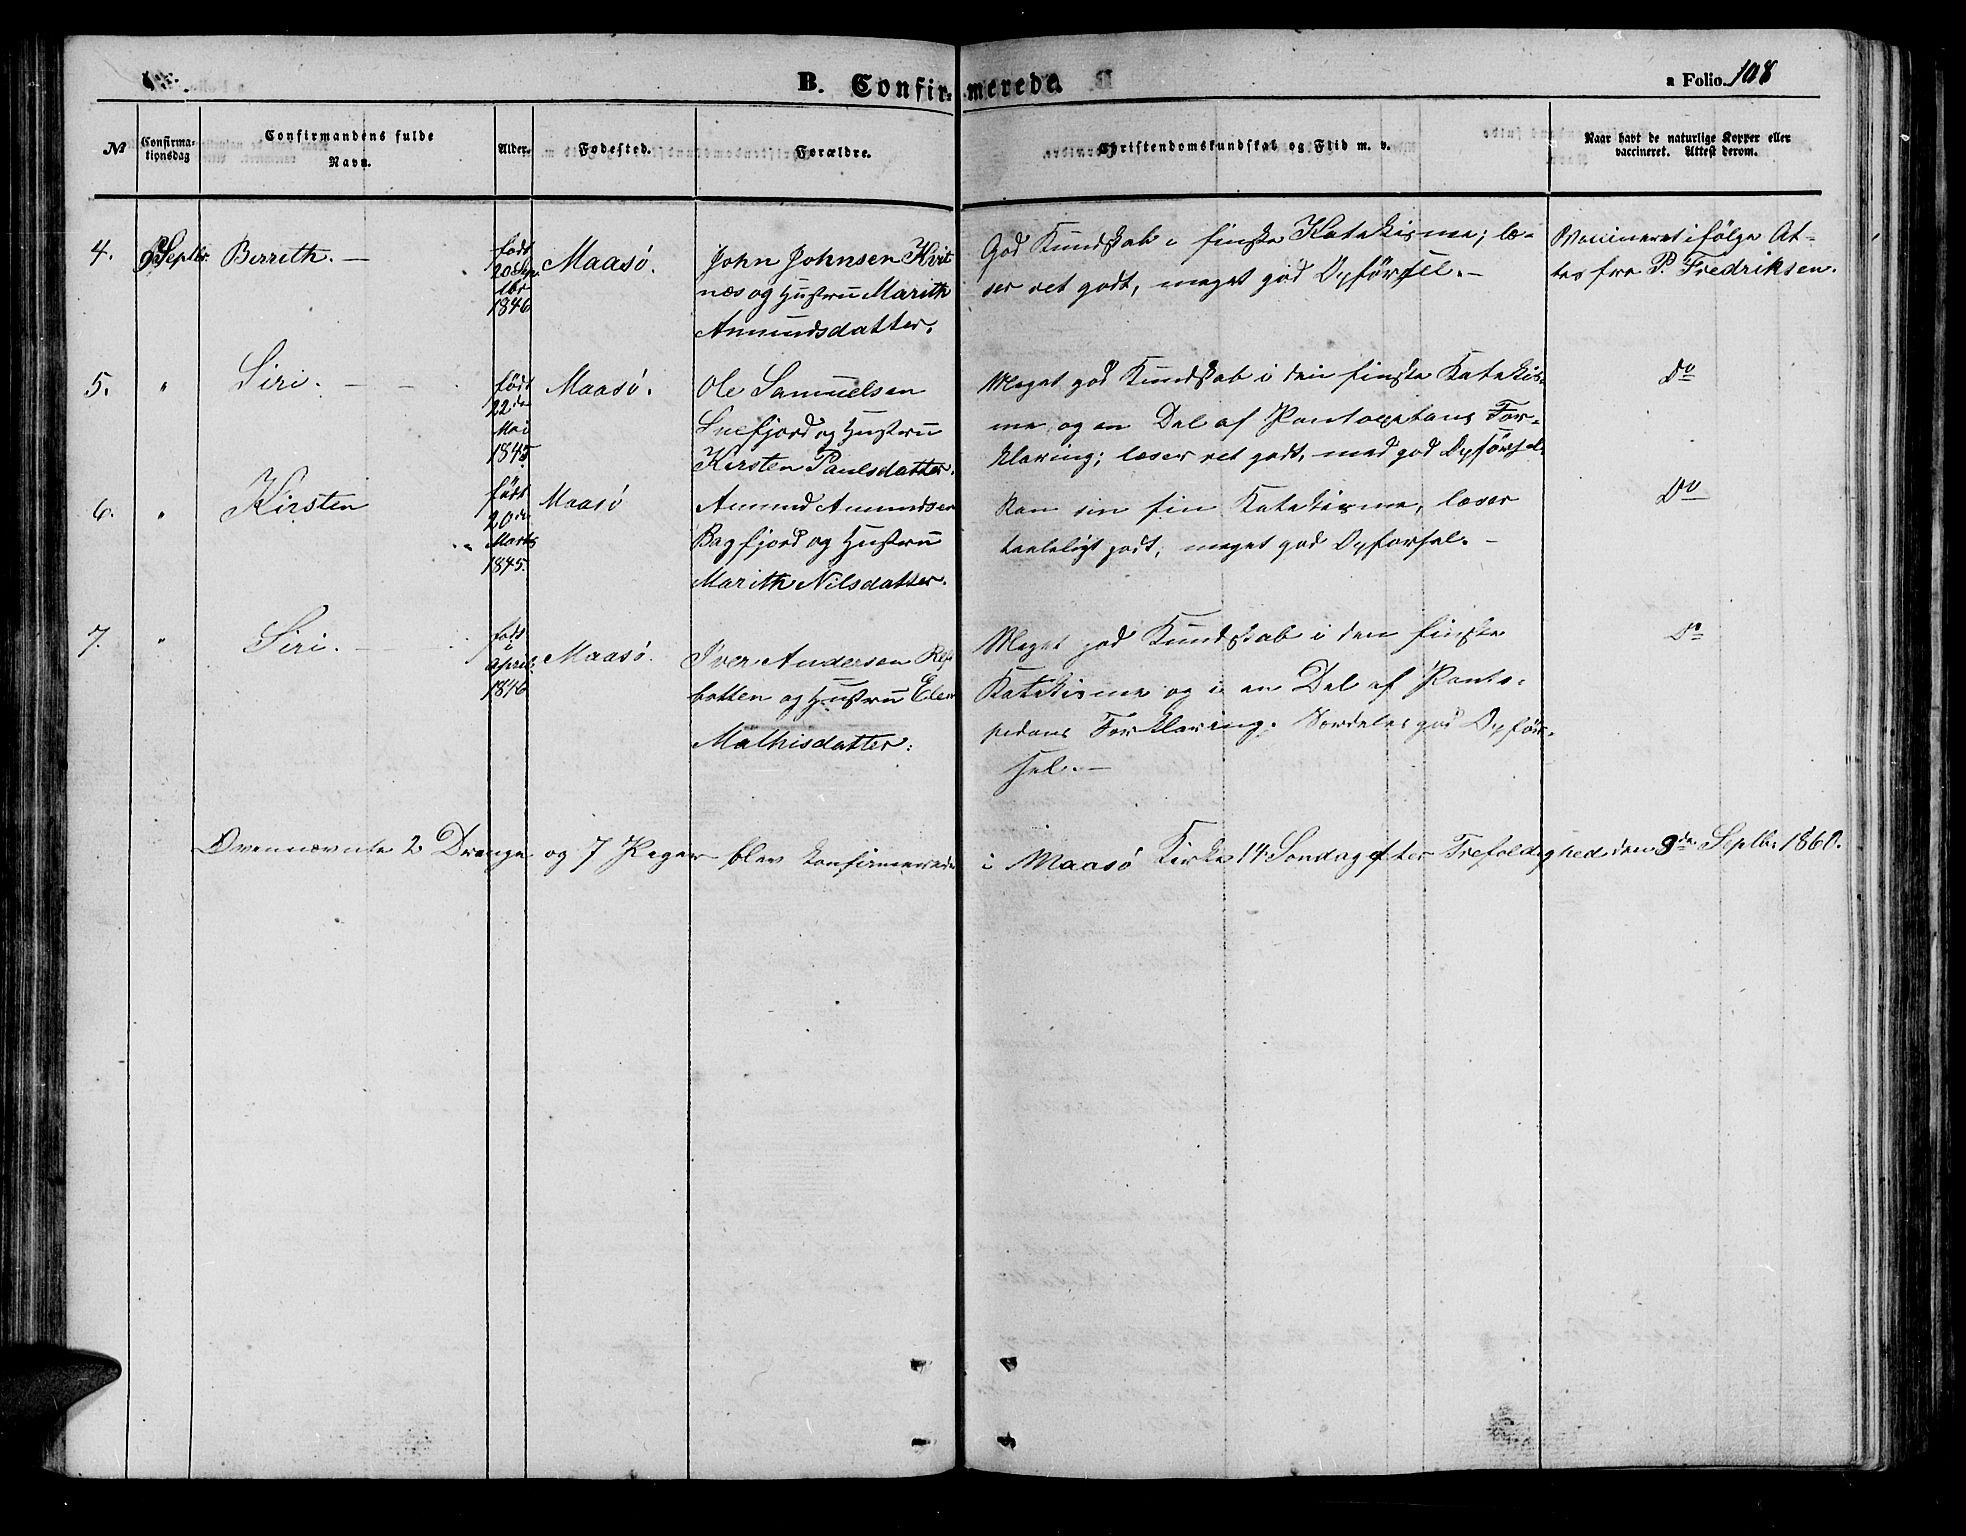 B. Confirmerede.
a Folio 108
No
Confirmationsdag
Confirmandens fulde Navn.
Alder.
Fodested.
Forældre.
Christendomskundskab og Flid m. v.
Naar havt de naturlige Kopper eller vaccineret. Attest derom.
4. Septbr. Berrith. — født 20 Sep-tbr 1846 Maasø.
John Johnsen Kvit-
næs og Hustru Marith
Amundsdatter.
God Kundskab i finske Katekisme; læ-
ser ret godt, meget god Opførsel. —
Vaccineret ifølge At-
tes fra P. Fredriksen.
5. " Siri. — — født 22de Mai 1845 Maasø.
Ole Samuelsen
Snefjord og Hustru
Kirsten Paulsdatter.
Meget god Kundskab i den finske Katekis-
me og en Del af Pontoppidans For-
klaring; læser ret godt, med god Opførsel.
Do
6. " Kirsten født 20de Marts 1845. Maasø
Amund Amundsen
Bagfjord og Hustru
Marith Nilsdatter.
Kan sin fin Katekisme, læser
taaleligt godt, meget god Opførsel. —
Do
7. " Siri. — født i April 1846 Maasø.
Iver Andersen Ref-
botten og Hustru Elen
Mathisdatter.
Meget god Kundskab i den finske
Katekisme og i en Del af Ponto-
pidans Forklaring. Særdeles god Opfør-
sel. —
Do
Ovennævnte 2 Drenge og 7 Piger blev konfirmerede i Maasø Kirke 14. Søndag efter Trefoldighed den 9de Septbr 1860.